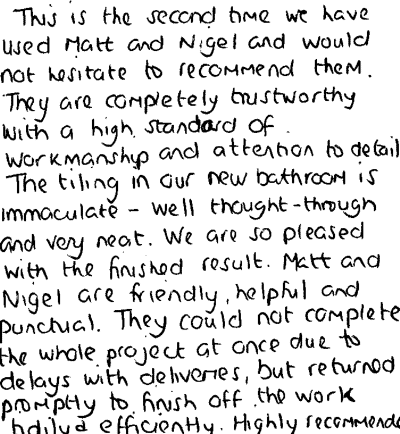 This is the second time we have
used Matt and Nigel and would
not hesitate to recommend them.
They are completely trustworthy
with a high standard of
workmanship and attention to detail
The tiling in our new bathroom is
immaculate - well thought-through
and very neat. We are so pleased
with the finished result. Matt and
Nigel are friendly, helpful and
punctual. They could not complete
the whole project at once due to
delays with deliveries, but returned
promptly to finish off the work
efficiently. Highly